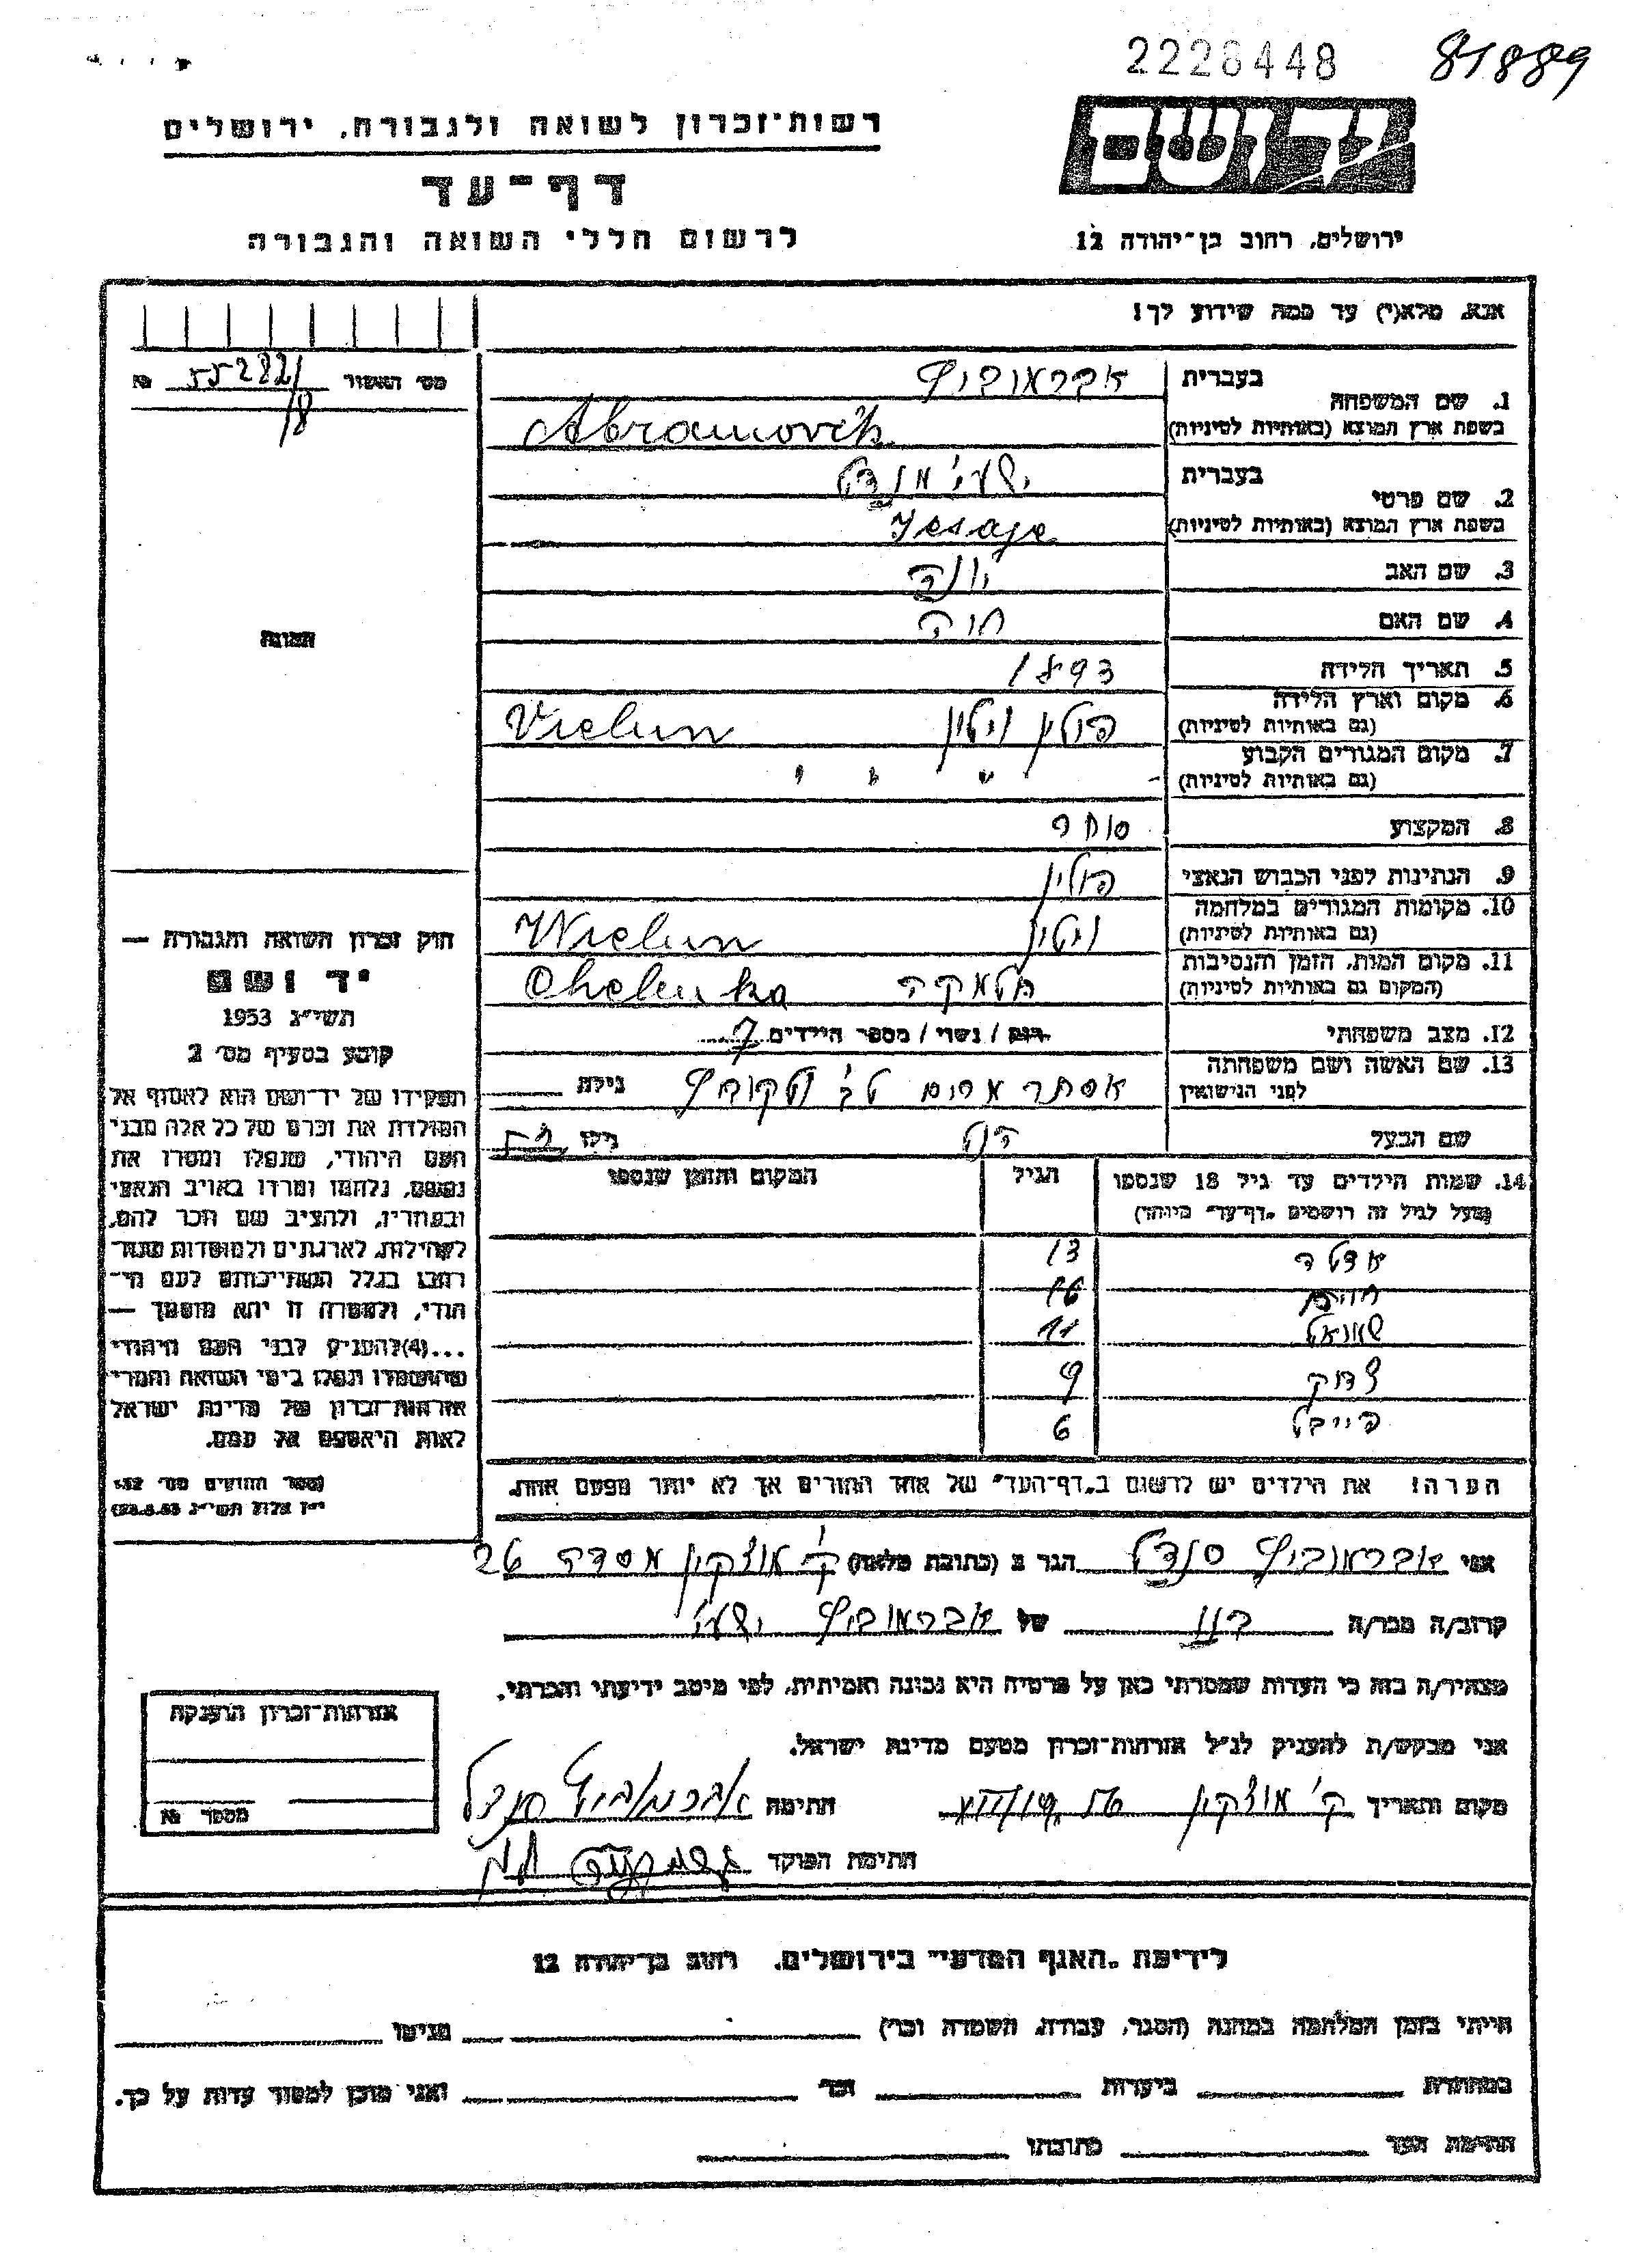 2226448 81889
יד ושם
רשות־זכרון לשואה ולגבורה, ירושלים
דף־עד
לרשום חללי השואה והגבורה
ירושלים, רחוב בן־יהודה 12
אנא, מלא(י) עד כמה שידוע לך!
מס' האשור 55282/ №
/8
1. שם המשפחה בעברית אברמוביץ
בשפת ארץ המוצא (באותיות לטיניות) Abramovich
2. שם פרטי בעברית ישעי' מנדל
בשפת ארץ המוצא (באותיות לטיניות) Jesaje
3. שם האב יונה
4. שם האם חוה
5. תאריך הלידה 1893
6. מקום וארץ הלידה (גם באותיות לטיניות) פולין וילון Vielun
7. מקום המגורים הקבוע (גם באותיות לטיניות) " " "
8. המקצוע סוחר
9. הנתינות לפני הכבוש הנאצי פולין
10. מקומות המגורים במלחמה (גם באותיות לטיניות) וילון Wielun
11. מקום המות, הזמן והנסיבות (המקום גם באותיות לטיניות) חלמקה Chelemka
12. מצב משפחתי רווק / נשוי / מספר הילדים 7
13. שם האשה ושם משפחתה לפני הנישואין אסתר מרים גילה
שם הבעל גילו 52
14. שמות הילדים עד גיל 18 שנספו הגיל המקום והזמן שנספו
(מעל לגיל זה רושמים "דף־עד" מיוחד)
אדלה 13
חיים 16
שמואל 11
צדוק 9
פייבל 6
הערה! את הילדים יש לרשום ב"דף־העד" של אחד ההורים אך לא יותר מפעם אחת.
התמונה
חוק זכרון השואה והגבורה —
יד ושם
תשי"ג 1953
קובע בסעיף מס' 2
תפקידו של יד־ושם הוא לאסוף אל
המולדת את זכרם של כל אלה מבני
העם היהודי, שנפלו ומסרו את
נפשם, נלחמו ומרדו באויב הנאצי
ובעוזריו, ולהציב שם וזכר להם,
לקהילות, לארגונים ולמוסדות שנח־
רבו בגלל השתייכותם לעם הי־
הודי, ולמטרה זו יהא מוסמך —
...(4) להעניק לבני העם היהודי
שהושמדו ונפלו בימי השואה והמרי
אזרחות־זכרון של מדינת ישראל
לאות היאספם אל עמם.
(ספר החוקים מס' 132,
י"ז אלול תשי"ג 28.8.53)
אני אברמוביץ מנדל הגר ב (כתובת מלאה) ק' מוצקין מסדה 26
קרוב/ה מכר/ה בנו של אברמוביץ ישעי'
מצהיר/ה בזה כי העדות שמסרתי כאן על פרטיה היא נכונה ואמיתית, לפי מיטב ידיעתי והכרתי.
אני מבקש/ת להעניק לנ"ל אזרחות־זכרון מטעם מדינת ישראל.
מקום ותאריך ק' מוצקין חתימה אברמוביץ מנדל
חתימת הפוקד
אזרחות־זכרון הוענקה
מספר №
לידיעת "האגף המדעי" בירושלים, רחוב בן־יהודה 12
הייתי בזמן המלחמה במחנה (הסגר, עבודה, השמדה וכו') בגיטו
במחתרת ביערות וכו' ואני מוכן למסור עדות על כך.
חתימת העד כתובתו